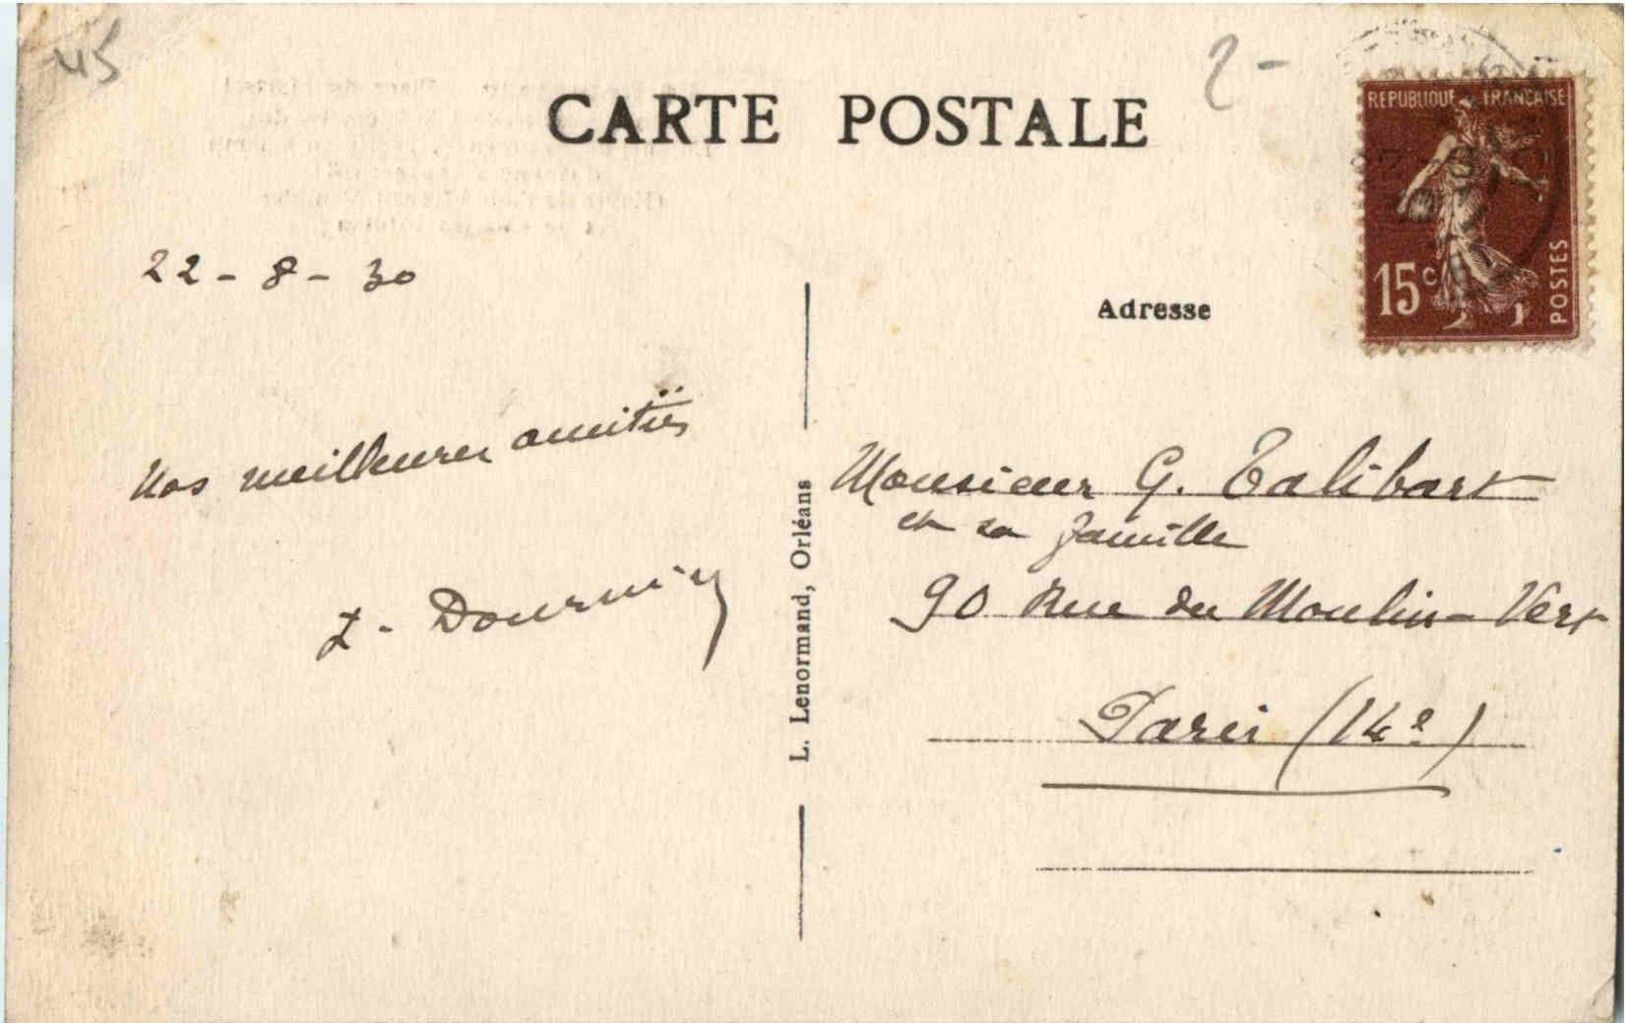 45
2-
CARTE POSTALE
REPUBLIQUE FRANÇAISE
15c
POSTES
22 - 8 - 30
Adresse
Nos meilleures amitiés
Monsieur G. Talibart
et sa famille
90 Rue du Moulin-Vert
Paris (14e)
L. Lenormand, Orléans